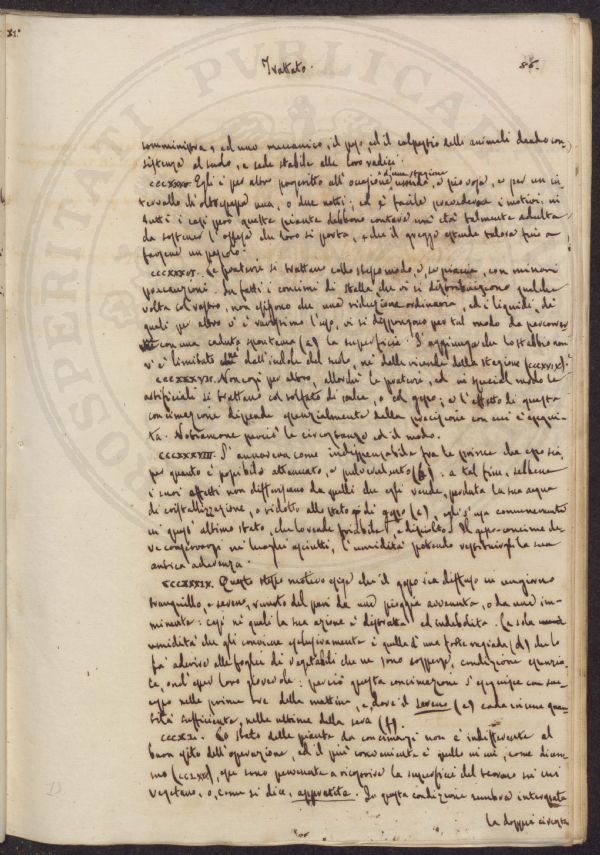 XI.
Trattato.
86.
somministra, ed uno meccanico, il peso, ed il calpestio delle animali dando con
sistenza al suolo, e sede stabile alle loro radici.
CCCXXXV. Egli è per altro proscritto all'occasione d'una stagione umida, e piovosa, e per un in
tervallo di oltrepassa una, o due notti; ed è facile prevederne i motivi: in
tutti i casi però queste piante debbono contare una età talmente adulta
da sostener l'offesa che loro si porta, e che il gregge estende talora fino a
farsene un pascolo.
CCCXXXVI. Le praterie si trattano collo stesso modo, e, se piaccia, con minori
precauzioni. In fatti i concimi di stalla che vi si distribuiscono qualche
volta col rastro, non esigono che una riduzione ordinaria, ed i liquidi, de'
quali per altro vi è rarissimo l'uso, vi si dispongono per tal modo da percorrer
con una caduta spontanea (a) la superficie. S'aggiunga che lo stabbio non
v'è limitato dall'indole del suolo, nè dalle vicende della stagione (CCCXVIX).
CCCXXXVII. Non così per altro, allorchè le praterie, ed in special modo le
artificiali si trattano col solfato di calce, o col gesso; e l'effetto di questa
concimazione dipende essenzialmente dalla precisione con cui è esegui-
ta. Notiamone perciò le circostanze ed il modo.
CCCXXXVIII. S'annovera come indispensabile fra le prime che esso sia,
per quanto è possibile attenuato, e polverulento (b). a tal fine, sebbene
i suoi effetti non differiscano da quelli che egli rende, perduta la sua acqua
di cristallizzazione, o ridotto allo stato di gesso (c), egli s'usa comunemente
in quest'ultimo stato, che lo rende friabile, e disciolto. Il gesso-concime de
ve conservarsi ne' luoghi asciutti, l'umidità potendo restituirgli la sua
antica aderenza.
CCCXXXIX. Questo stesso motivo esige che il gesso sia diffuso in un giorno
tranquillo, e sereno, remoto del pari da una pioggia avvenuta, o da una im-
minente: casi ne' quali la sua azione è distratta ed indebolita. La sola
umidità che gli conviene esclusivamente è quella d'una forte rugiada (d) che lo
fa aderire alle foglie di vegetabili che ne sono cosperse, condizione essenzia
le, ond'esser loro giovevole: perciò questa concimazione s'eseguisce con suc-
cesso nelle prime ore della mattina, e, dove il sereno (e) cada in una quan
tità sufficiente, nelle ultime della sera (f).
CCCXL. Lo stato delle piante da concimarsi non è indifferente al
buon esito dell'operazione, ed il più conveniente è quello in cui, come dicem
mo (CCLXX), esse sono pervenute a ricoprire la superficie del terreno in cui
vegetano, o, come si dice, appratite. In questa condizione sembra interessata
la doppia circosta